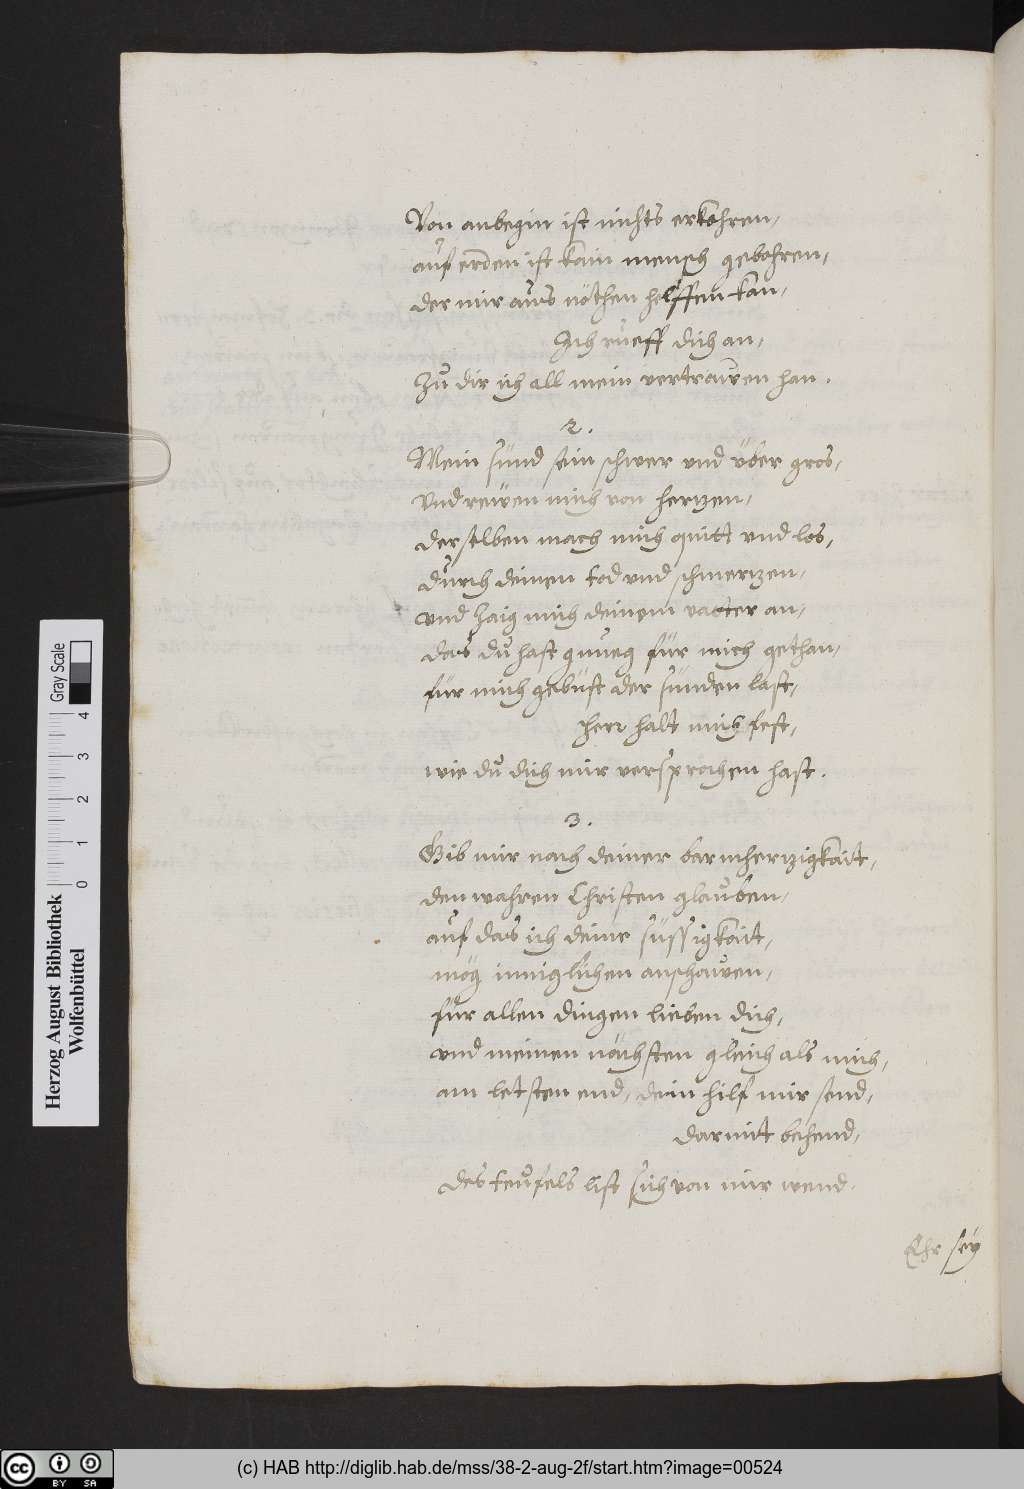 Von anbegin ist nichts erkohren,
auf erden ist kain mensch gebohren,
der mir aus nöthen helffen kan,
Ich rueff dich an,
Zu dir ich all mein vertrawen han.
2.
Mein sünd sein schwer und über gros,
Und rewen mich von hertzen,
derselben mach mich quitt und los,
durch deinen tod und schmertzen,
und zaig mich deinem vatter an,
das du hast gnueg für mich gethan,
für mich gebüst der sünden last,
herr halt mich fest,
wie du dich mir versprochen hast.
3.
Gib mir nach deiner barmhertzigkait,
den wahren Christen glauben,
auf das ich deine süssigkait,
mög inniglichen anschawen,
für allen dingen lieben dich,
und meinen nächsten gleich als mich,
am letsten end, dein hilf mir send,
darmit behend,
des teufels list sich von mir wend.
Ehr sey
Herzog August Bibliothek
Wolfenbüttel
0 1 2 3 4
Gray Scale
cc BY SA
(c) HAB http://diglib.hab.de/mss/38-2-aug-2f/start.htm?image=00524